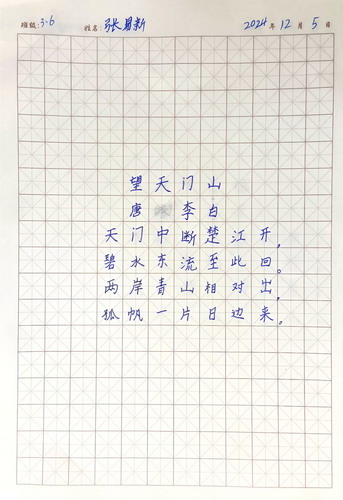 班级:3.6 姓名:张易新 2024年12月5日
望天门山
唐 李白
天门中断楚江开，
碧水东流至此回。
两岸青山相对出，
孤帆一片日边来。